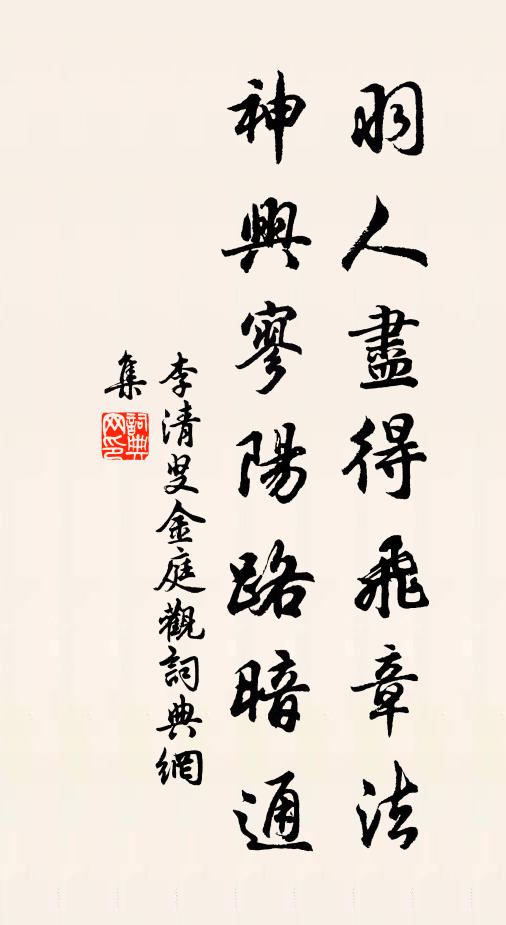 羽人盡得飛章法
神與寥陽路暗通
李清叟金庭觀詞典網
集
詞典
网印